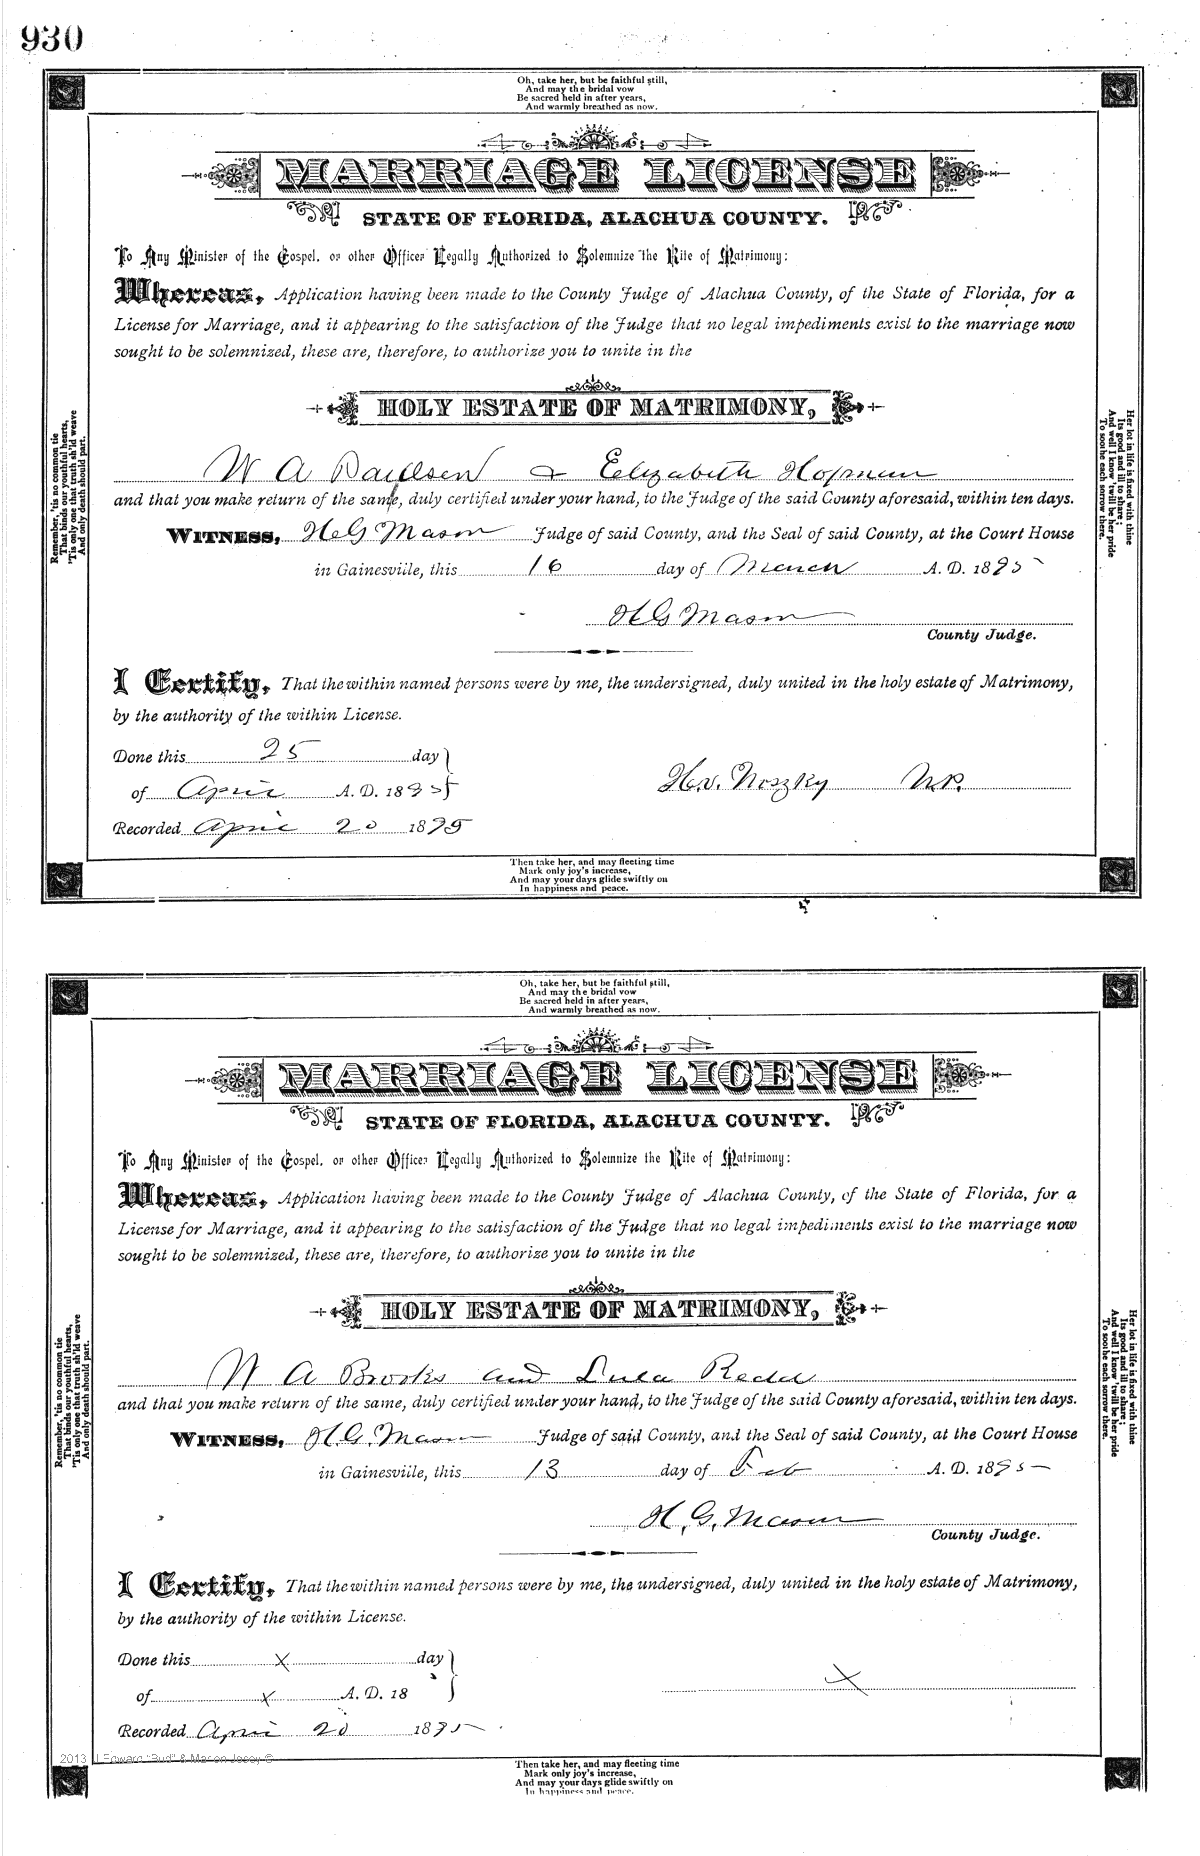 930
Oh, take her, but be faithful still,
And may the bridal vow
Be sacred held in after years,
And warmly breathed as now.
MARRIAGE LICENSE
STATE OF FLORIDA, ALACHUA COUNTY.
To Any Minister of the Gospel, or other Officer Legally Authorized to Solemnize the Rite of Matrimony:
Whereas, Application having been made to the County Judge of Alachua County, of the State of Florida, for a
License for Marriage, and it appearing to the satisfaction of the Judge that no legal impediments exist to the marriage now
sought to be solemnized, these are, therefore, to authorize you to unite in the
HOLY ESTATE OF MATRIMONY,
W A Paulsen & Elizabeth Hopman
and that you make return of the same, duly certified under your hand, to the Judge of the said County aforesaid, within ten days.
WITNESS, H G Mason Judge of said County, and the Seal of said County, at the Court House
in Gainesville, this 16 day of March A. D. 1895
H G Mason
County Judge.
I Certify, That the within named persons were by me, the undersigned, duly united in the holy estate of Matrimony,
by the authority of the within License.
Done this 25 day
of April A. D. 1895
H.v. Noszky N.P.
Recorded April 20 1895
Then take her, and may fleeting time
Mark only joy's increase,
And may your days glide swiftly on
In happiness and peace.
Remember, 'tis no common tie
That binds our youthful hearts,
'Tis only one that truth sh'ld weave
And only death should part.
Her lot in life is fixed with thine
Its good and ill to share;
And well I know 'twill be her pride
To soothe each sorrow there.
Oh, take her, but be faithful still,
And may the bridal vow
Be sacred held in after years,
And warmly breathed as now.
MARRIAGE LICENSE
STATE OF FLORIDA, ALACHUA COUNTY.
To Any Minister of the Gospel, or other Officer Legally Authorized to Solemnize the Rite of Matrimony:
Whereas, Application having been made to the County Judge of Alachua County, of the State of Florida, for a
License for Marriage, and it appearing to the satisfaction of the Judge that no legal impediments exist to the marriage now
sought to be solemnized, these are, therefore, to authorize you to unite in the
HOLY ESTATE OF MATRIMONY,
W A Brooks and Lula Redd
and that you make return of the same, duly certified under your hand, to the Judge of the said County aforesaid, within ten days.
WITNESS, H. G. Mason Judge of said County, and the Seal of said County, at the Court House
in Gainesville, this 13 day of Feb A. D. 1895
H. G. Mason
County Judge.
I Certify, That the within named persons were by me, the undersigned, duly united in the holy estate of Matrimony,
by the authority of the within License.
Done this X day
of X A. D. 18
X
Recorded April 20 1895
2013 J Edward "Bud" & Marion Josey ©
Then take her, and may fleeting time
Mark only joy's increase,
And may your days glide swiftly on
In happiness and peace.
Remember, 'tis no common tie
That binds our youthful hearts,
'Tis only one that truth sh'ld weave
And only death should part.
Her lot in life is fixed with thine
Its good and ill to share;
And well I know 'twill be her pride
To soothe each sorrow there.